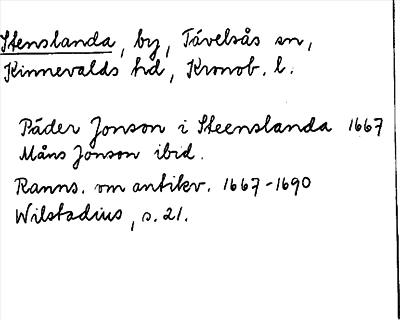 Stenslanda, by, Tävelsås sn,
Kinnevalds hd, Kronob. l.
Päder Jonson i Steenslanda 1667
Måns Jonson ibid.
Ranns. om antikv. 1667-1690
Wilstadius, s. 21.